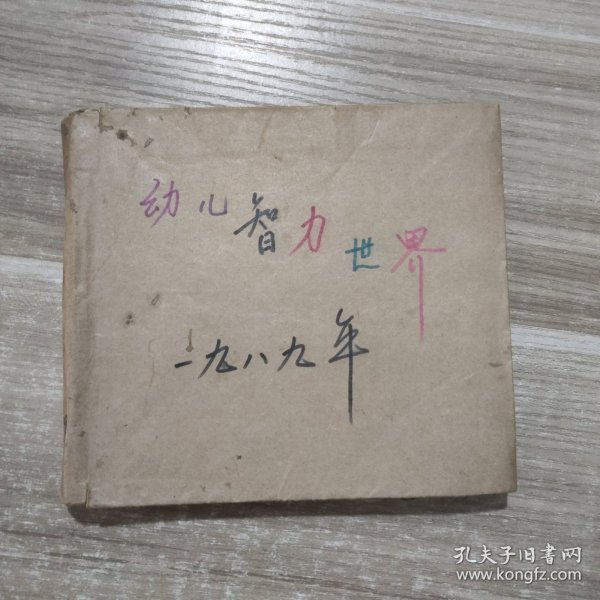 幼儿智力世界
一九八九年
孔夫子旧书网
www.kongfz.com